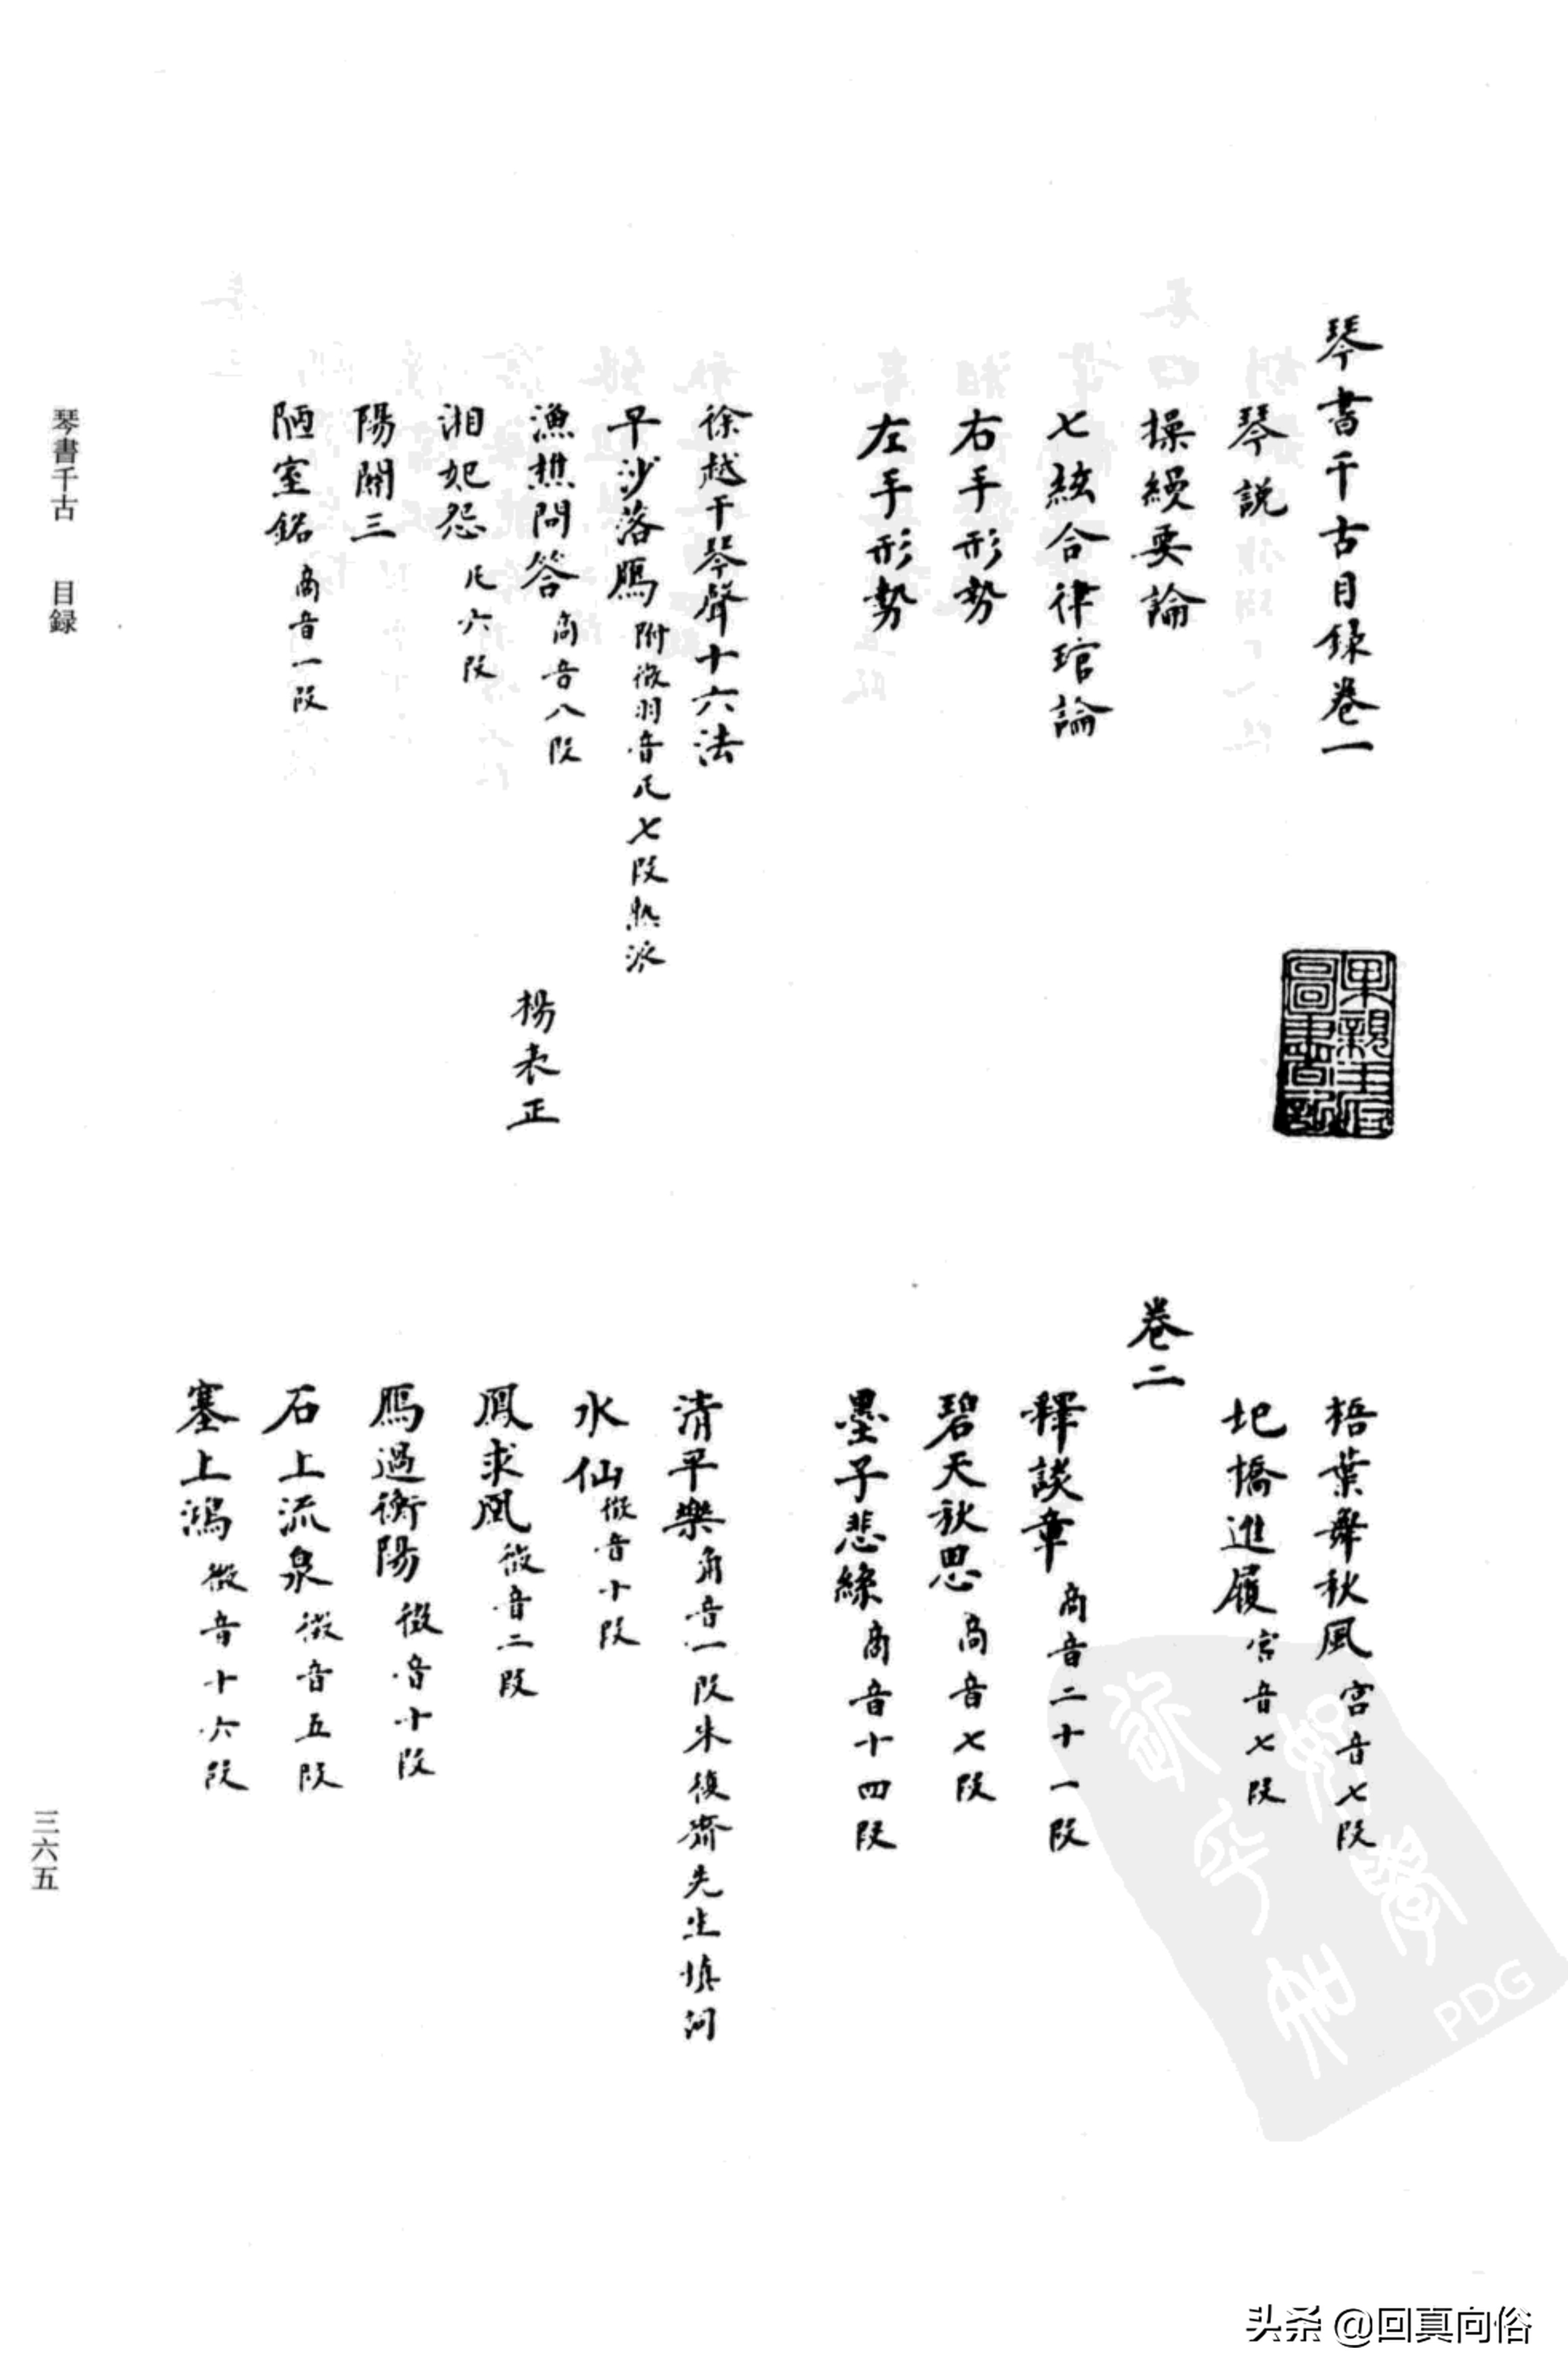 琴書千古目錄卷一
琴説
操縵要論
七絃合律琯論
右手形勢
左手形勢
徐越千琴聲十六法
平沙落鴈 附徵羽音凡七段熟派
漁樵問答 商音八段 楊表正
湘妃怨 凡六段
陽關三
陋室銘 商音一段
果親王府圖書記
梧葉舞秋風 宮音七段
圯橋進履 宮音七段
卷二
釋談章 商音二十一段
碧天秋思 商音七段
墨子悲絲 商音十四段
清平樂 角音一段朱復齋先生填詞
水仙 徵音十段
鳳求凰 徵音二段
鴈過衡陽 徵音十段
石上流泉 徵音五段
塞上鴻 徵音十六段
琴書千古 目録
三六五
PDG
头条 @回真向俗